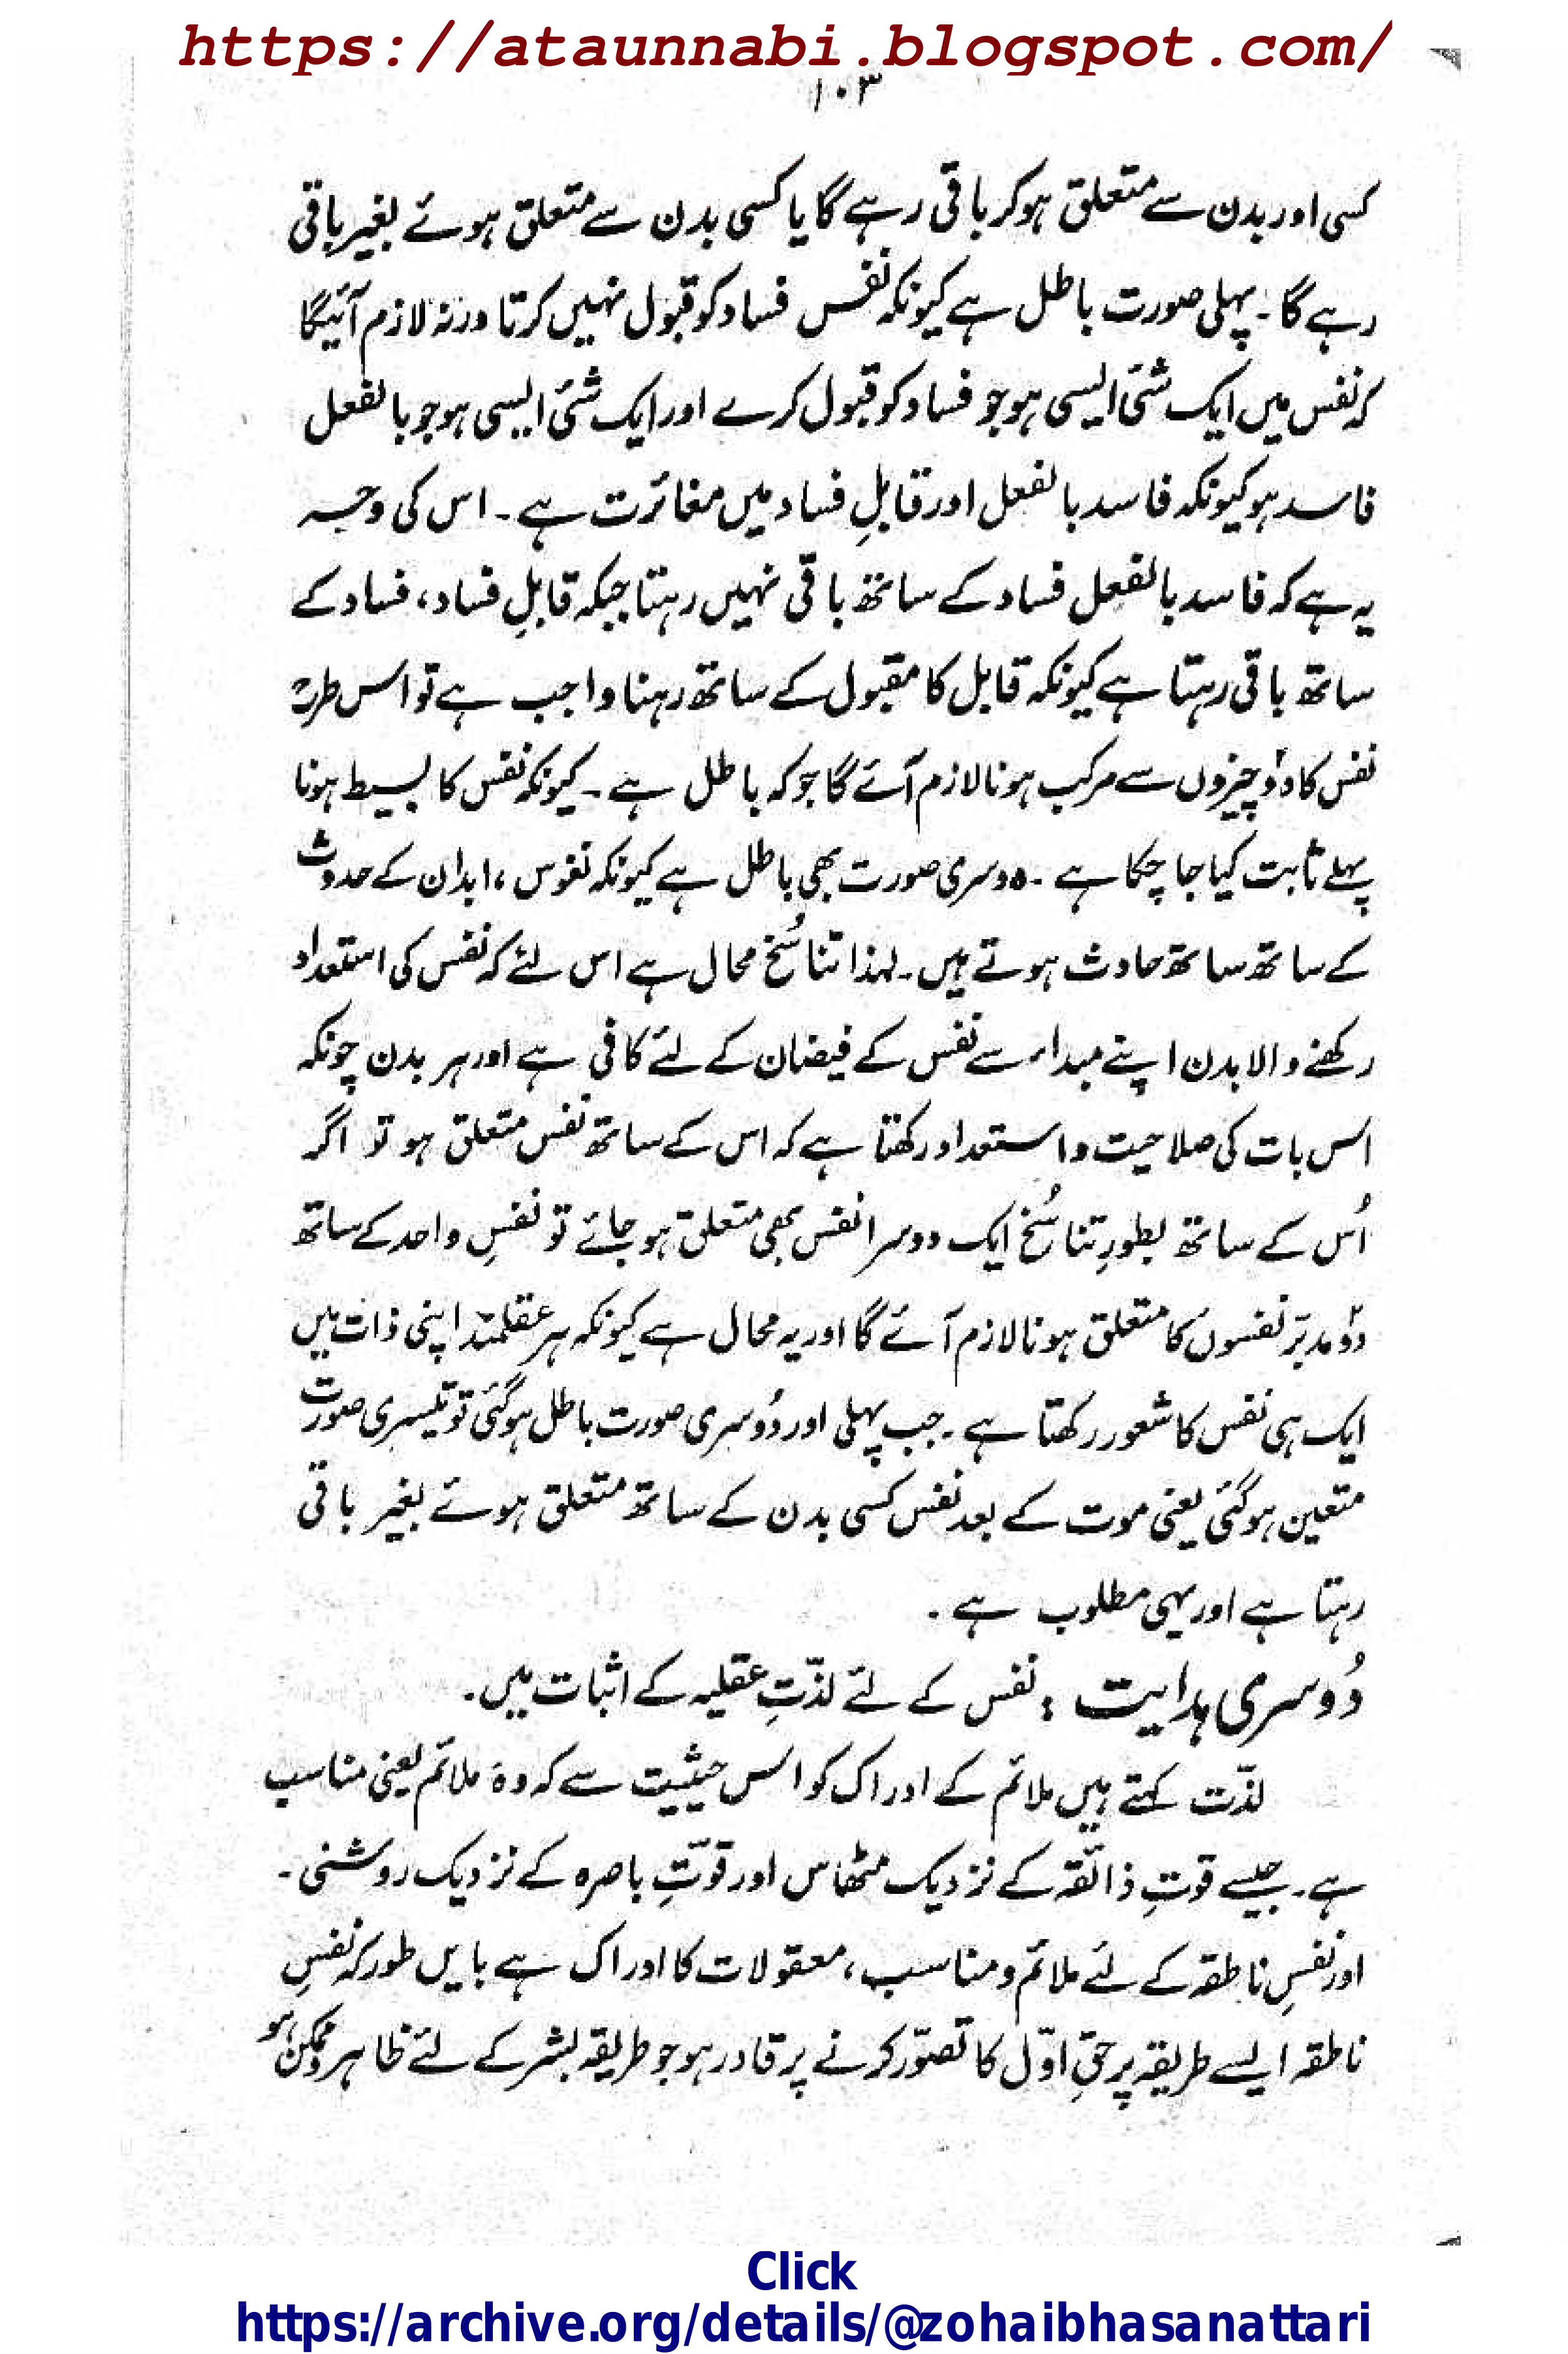 https://ataunnabi.blogspot.com/
۱۰۳
کسی اور بدن سے متعلق ہوکر باقی رہے گا یا کسی بدن سے متعلق ہوئے بغیر باقی
رہے گا۔ پہلی صورت باطل ہے کیونکہ نفس فساد کو قبول نہیں کرتا ورنہ لازم آئیگا
کہ نفس میں ایک شئ ایسی ہو جو فساد کو قبول کرے اور ایک شئ ایسی ہو جو بالفعل
فاسد ہو کیونکہ فاسد بالفعل اور قابلِ فساد میں مغائرت ہے۔ اس کی وجہ
یہ ہے کہ فاسد بالفعل فساد کے ساتھ باقی نہیں رہتا جبکہ قابلِ فساد، فساد کے
ساتھ باقی رہتا ہے کیونکہ قابل کا مقبول کے ساتھ رہنا واجب ہے تو اس طرح
نفس کا دو چیزوں سے مرکب ہونا لازم آئے گا جو کہ باطل ہے۔ کیونکہ نفس کا بسیط ہونا
پہلے ثابت کیا جا چکا ہے۔ دوسری صورت بھی باطل ہے کیونکہ نفوس، ابدان کے حدوث
کے ساتھ ساتھ حادث ہوتے ہیں۔ لہذا تناسُخ محال ہے اس لئے کہ نفس کی استعداد
رکھنے والا بدن اپنے مبداء سے نفس کے فیضان کے لئے کافی ہے اور ہر بدن چونکہ
اس بات کی صلاحیت و استعداد رکھتا ہے کہ اس کے ساتھ نفس متعلق ہو تو اگر
اُس کے ساتھ بطورِ تناسُخ ایک دوسرا نفس بھی متعلق ہو جائے تو نفسِ واحد کے ساتھ
دو مدبّر نفسوں کا متعلق ہونا لازم آئے گا اور یہ محال ہے کیونکہ ہر عقلمند اپنی ذات میں
ایک ہی نفس کا شعور رکھتا ہے۔ جب پہلی اور دُوسری صورت باطل ہوگئی تو تیسری صورت
متعین ہوگئی یعنی موت کے بعد نفس کسی بدن کے ساتھ متعلق ہوئے بغیر باقی
رہتا ہے اور یہی مطلوب ہے۔
دُوسری ہدایت : نفس کے لئے لذّتِ عقلیہ کے اثبات میں۔
لذّت کہتے ہیں ملائم کے ادراک کو اس حیثیت سے کہ وہ ملائم یعنی مناسب
ہے۔ جیسے قوتِ ذائقہ کے نزدیک مٹھاس اور قوّتِ باصرہ کے نزدیک روشنی۔
اور نفسِ ناطقہ کے لئے ملائم و مناسب، معقولات کا ادراک ہے بایں طور کہ نفسِ
ناطقہ ایسے طریقہ پر حقِ اوّل کا تصوّر کرنے پر قادر ہو جو طریقہ بشر کے لئے ظاہر و ممکن ہو
Click
https://archive.org/details/@zohaibhasanattari